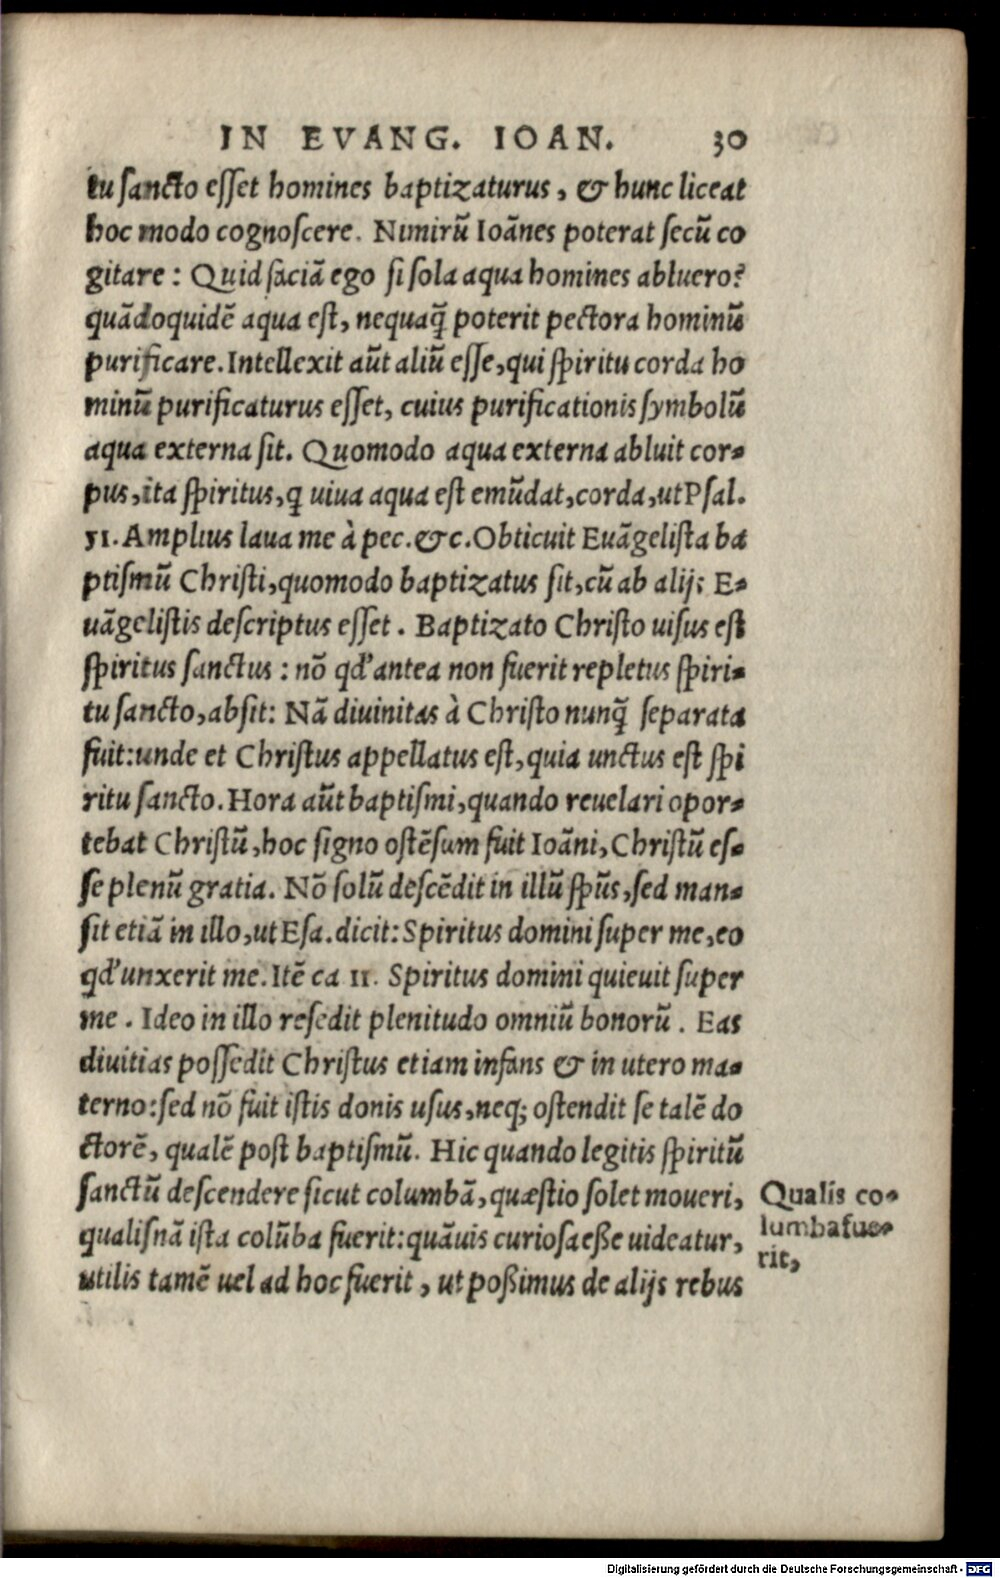 IN EVANG. IOAN. 30
tu sancto esset homines baptizaturus, & hunc liceat
hoc modo cognoscere. Nimirũ Ioãnes poterat secũ co
gitare: Quid faciã ego si sola aqua homines abluero?
quãdoquidẽ aqua est, nequaq̃ poterit pectora hominũ
purificare. Intellexit aũt aliũ esse, qui spiritu corda ho
minũ purificaturus esset, cuius purificationis symbolũ
aqua externa sit. Quomodo aqua externa abluit cor-
pus, ita spiritus, q̃ uiua aqua est emũdat, corda, ut Psal.
51. Amplius laua me à pec. &c. Obticuit Euãgelista ba
ptismũ Christi, quomodo baptizatus sit, cũ ab alijs E-
uãgelistis descriptus esset. Baptizato Christo uisus est
spiritus sanctus: nõ qd' antea non fuerit repletus spiri-
tu sancto, absit: Nã diuinitas à Christo nunq̃ separata
fuit: unde et Christus appellatus est, quia unctus est spi
ritu sancto. Hora aũt baptismi, quando reuelari opor-
tebat Christũ, hoc signo ostẽsum fuit Ioãni, Christũ es-
se plenũ gratia. Nõ solũ descẽdit in illũ sp̃us, sed man-
sit etiã in illo, ut Esa. dicit: Spiritus domini super me, eo
qd' unxerit me. Itẽ ca 11. Spiritus domini quieuit super
me. Ideo in illo resedit plenitudo omniũ bonorũ. Eas
diuitias possedit Christus etiam infans & in utero ma-
terno: sed nõ fuit istis donis usus, neq; ostendit se talẽ do
ctorẽ, qualẽ post baptismũ. Hic quando legitis spiritũ
sanctũ descendere sicut columbã, quæstio solet moueri,
qualisnã ista colũba fuerit: quãuis curiosa eße uideatur,
utilis tamẽ uel ad hoc fuerit, ut poßimus de alijs rebus
Qualis co-
lumba fue-
rit,
Digitalisierung gefördert durch die Deutsche Forschungsgemeinschaft - DFG